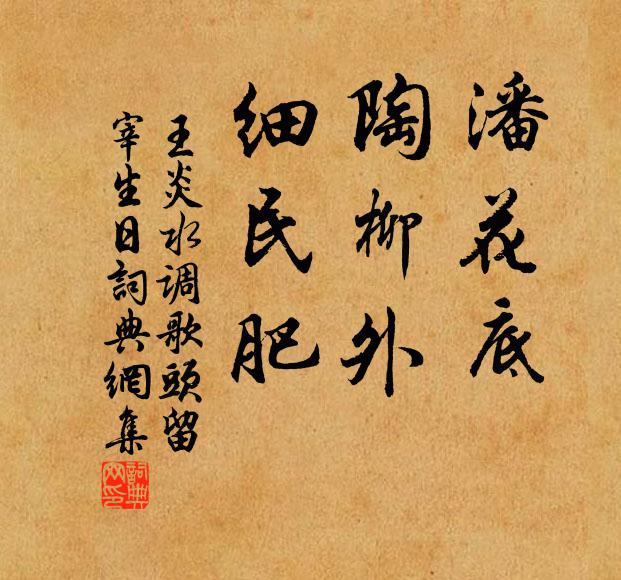 潘花底
陶柳外
细民肥
王炎水调歌頭留
宰生日詞典網集
詞典
网印